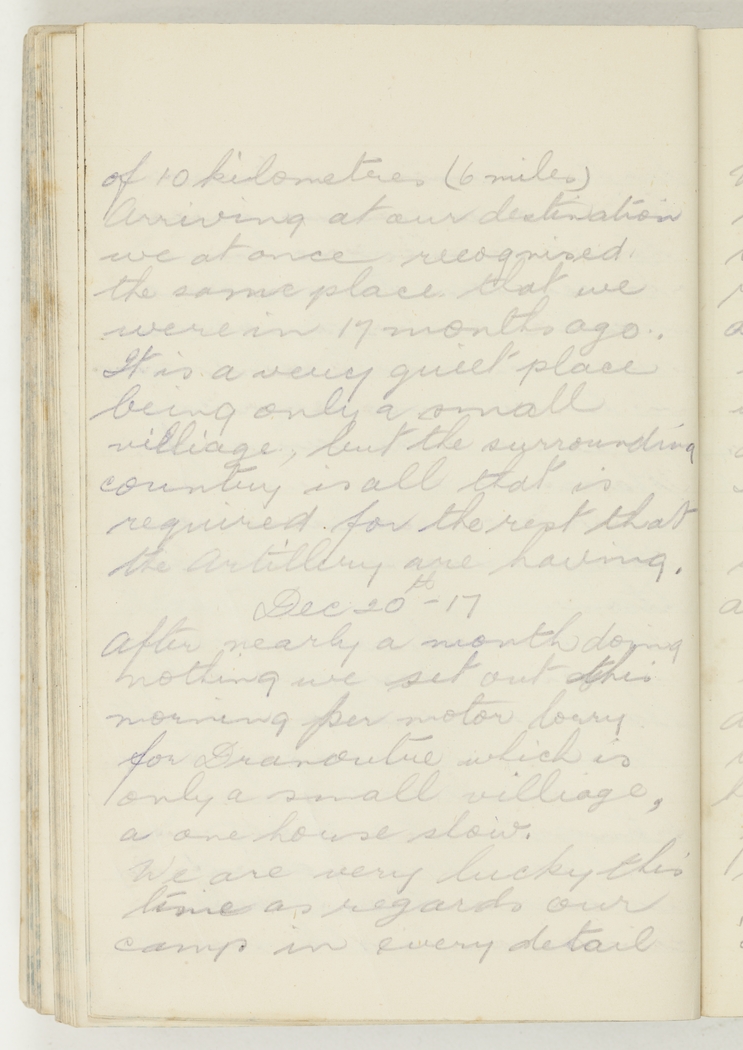 of 10 kilometres (6 miles)
Arriving at our destination
we at once recognised
the same place that we
were in 17 months ago.
It is a very quiet place
being only a small
villiage, but the surrounding
country is all that is
required for the rest that
the Artillery are having.
Dec 20th - 17
After nearly a month doing
nothing we set out this
morning per motor lorry
for Dranoutre which is
only a small villiage,
a one house
We are very lucky this
time as regards our
camp in every detail